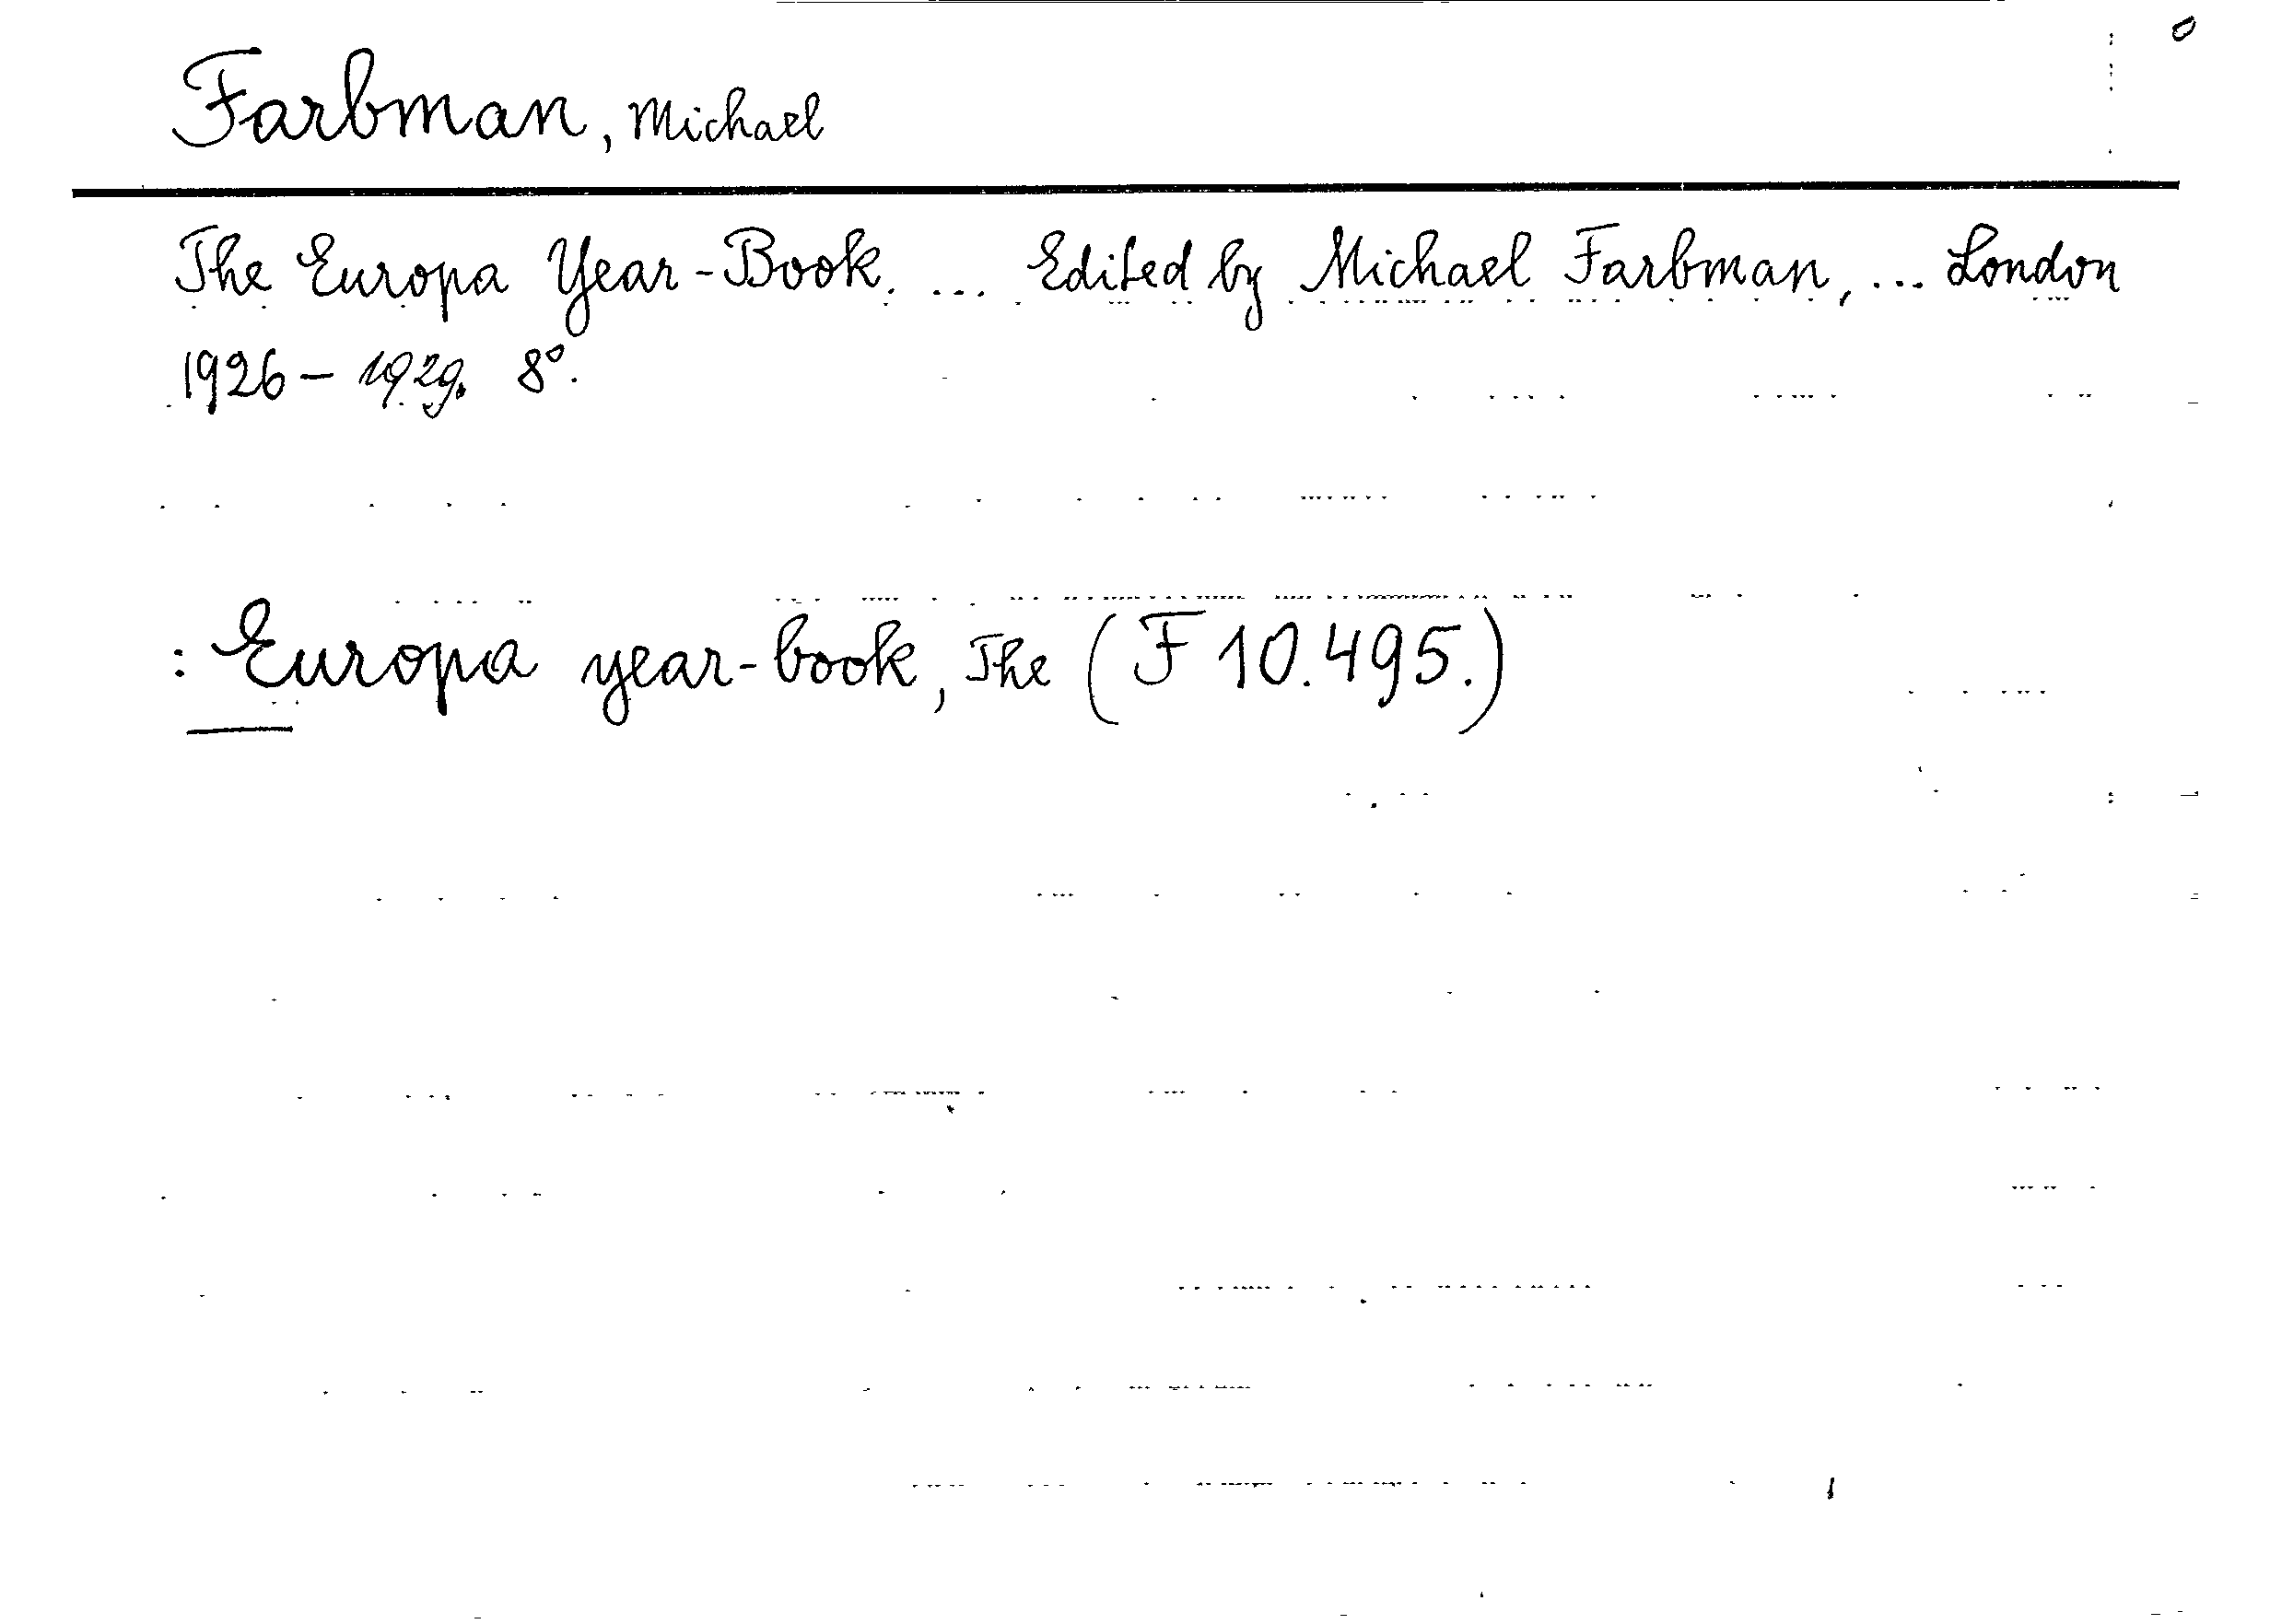 Farbman, Michael
The Europa Year-Book. ... Edited by Michael Farbman, ... London
1926 – 1929. 8°.
: Europa year-book, The (F 10.495.)